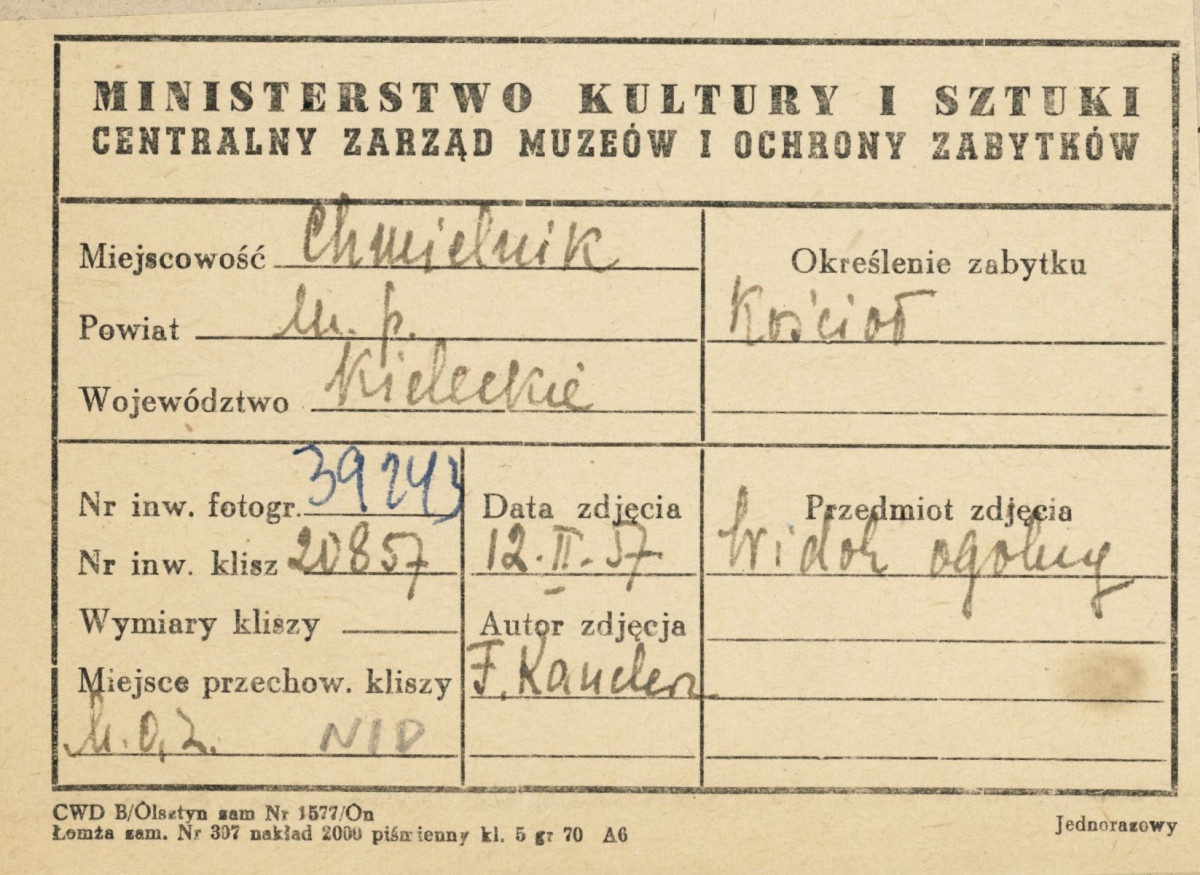 MINISTERSTWO KULTURY I SZTUKI
CENTRALNY ZARZĄD MUZEÓW I OCHRONY ZABYTKÓW
Miejscowość Chmielnik
Powiat m. p.
Województwo Kieleckie
Określenie zabytku
Kościoł
Nr inw. fotogr. 39243
Nr inw. klisz 20857
Wymiary kliszy
Miejsce przechow. kliszy
M.O.Z. NID
Data zdjęcia
12.II.57
Autor zdjęcja
F. Kanclerz
Przedmiot zdjęcia
Widok ogólny
CWD B/Olsztyn sam Nr 1577/On
Łomża zam. Nr 397 nakład 2000 piśmienny kl. 5 gr 70 A6
Jednorazowy